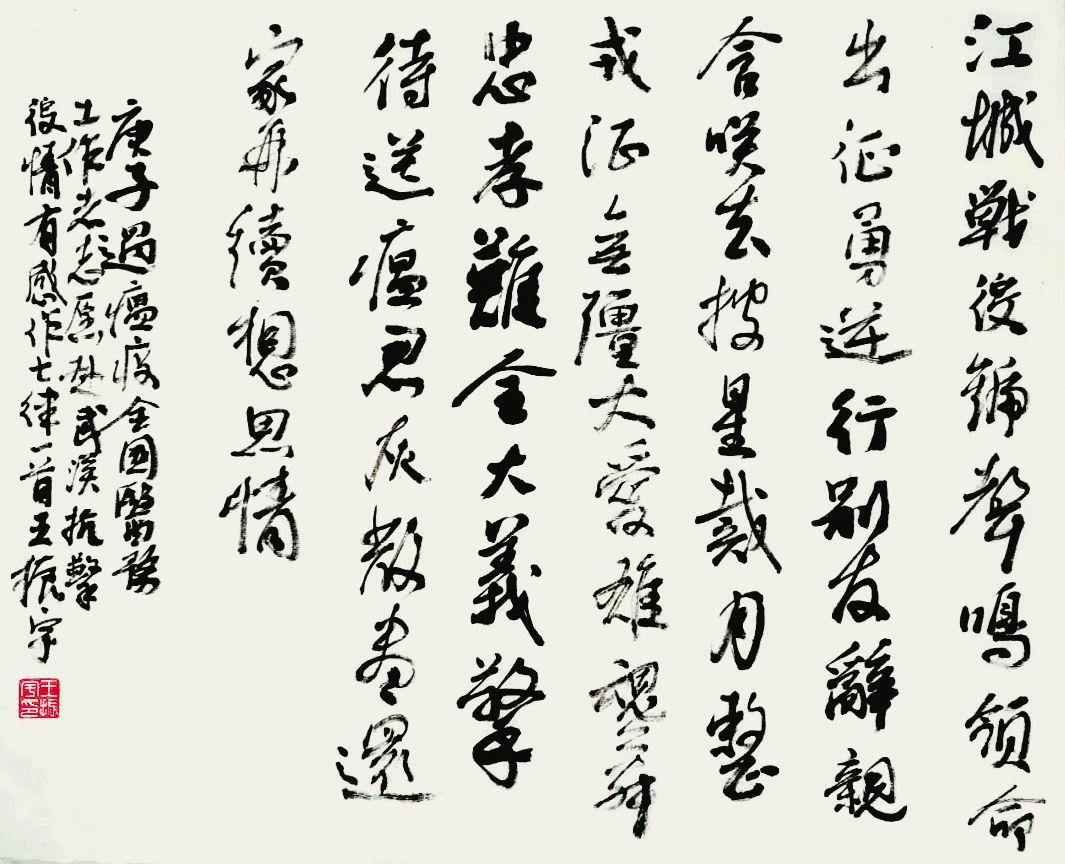 江城戰役號聲鳴領命
出征勇逆行別友辭親
含咲去披星戴月整
戎征無疆大愛雄魂舞
忠孝難全大義擎
待送瘟君灰散盡還
家再續想思情
庚子遇瘟疫全國醫務
工作者志愿赴武漢抗擊
疫情有感作七律一首王振宇
王振宇印